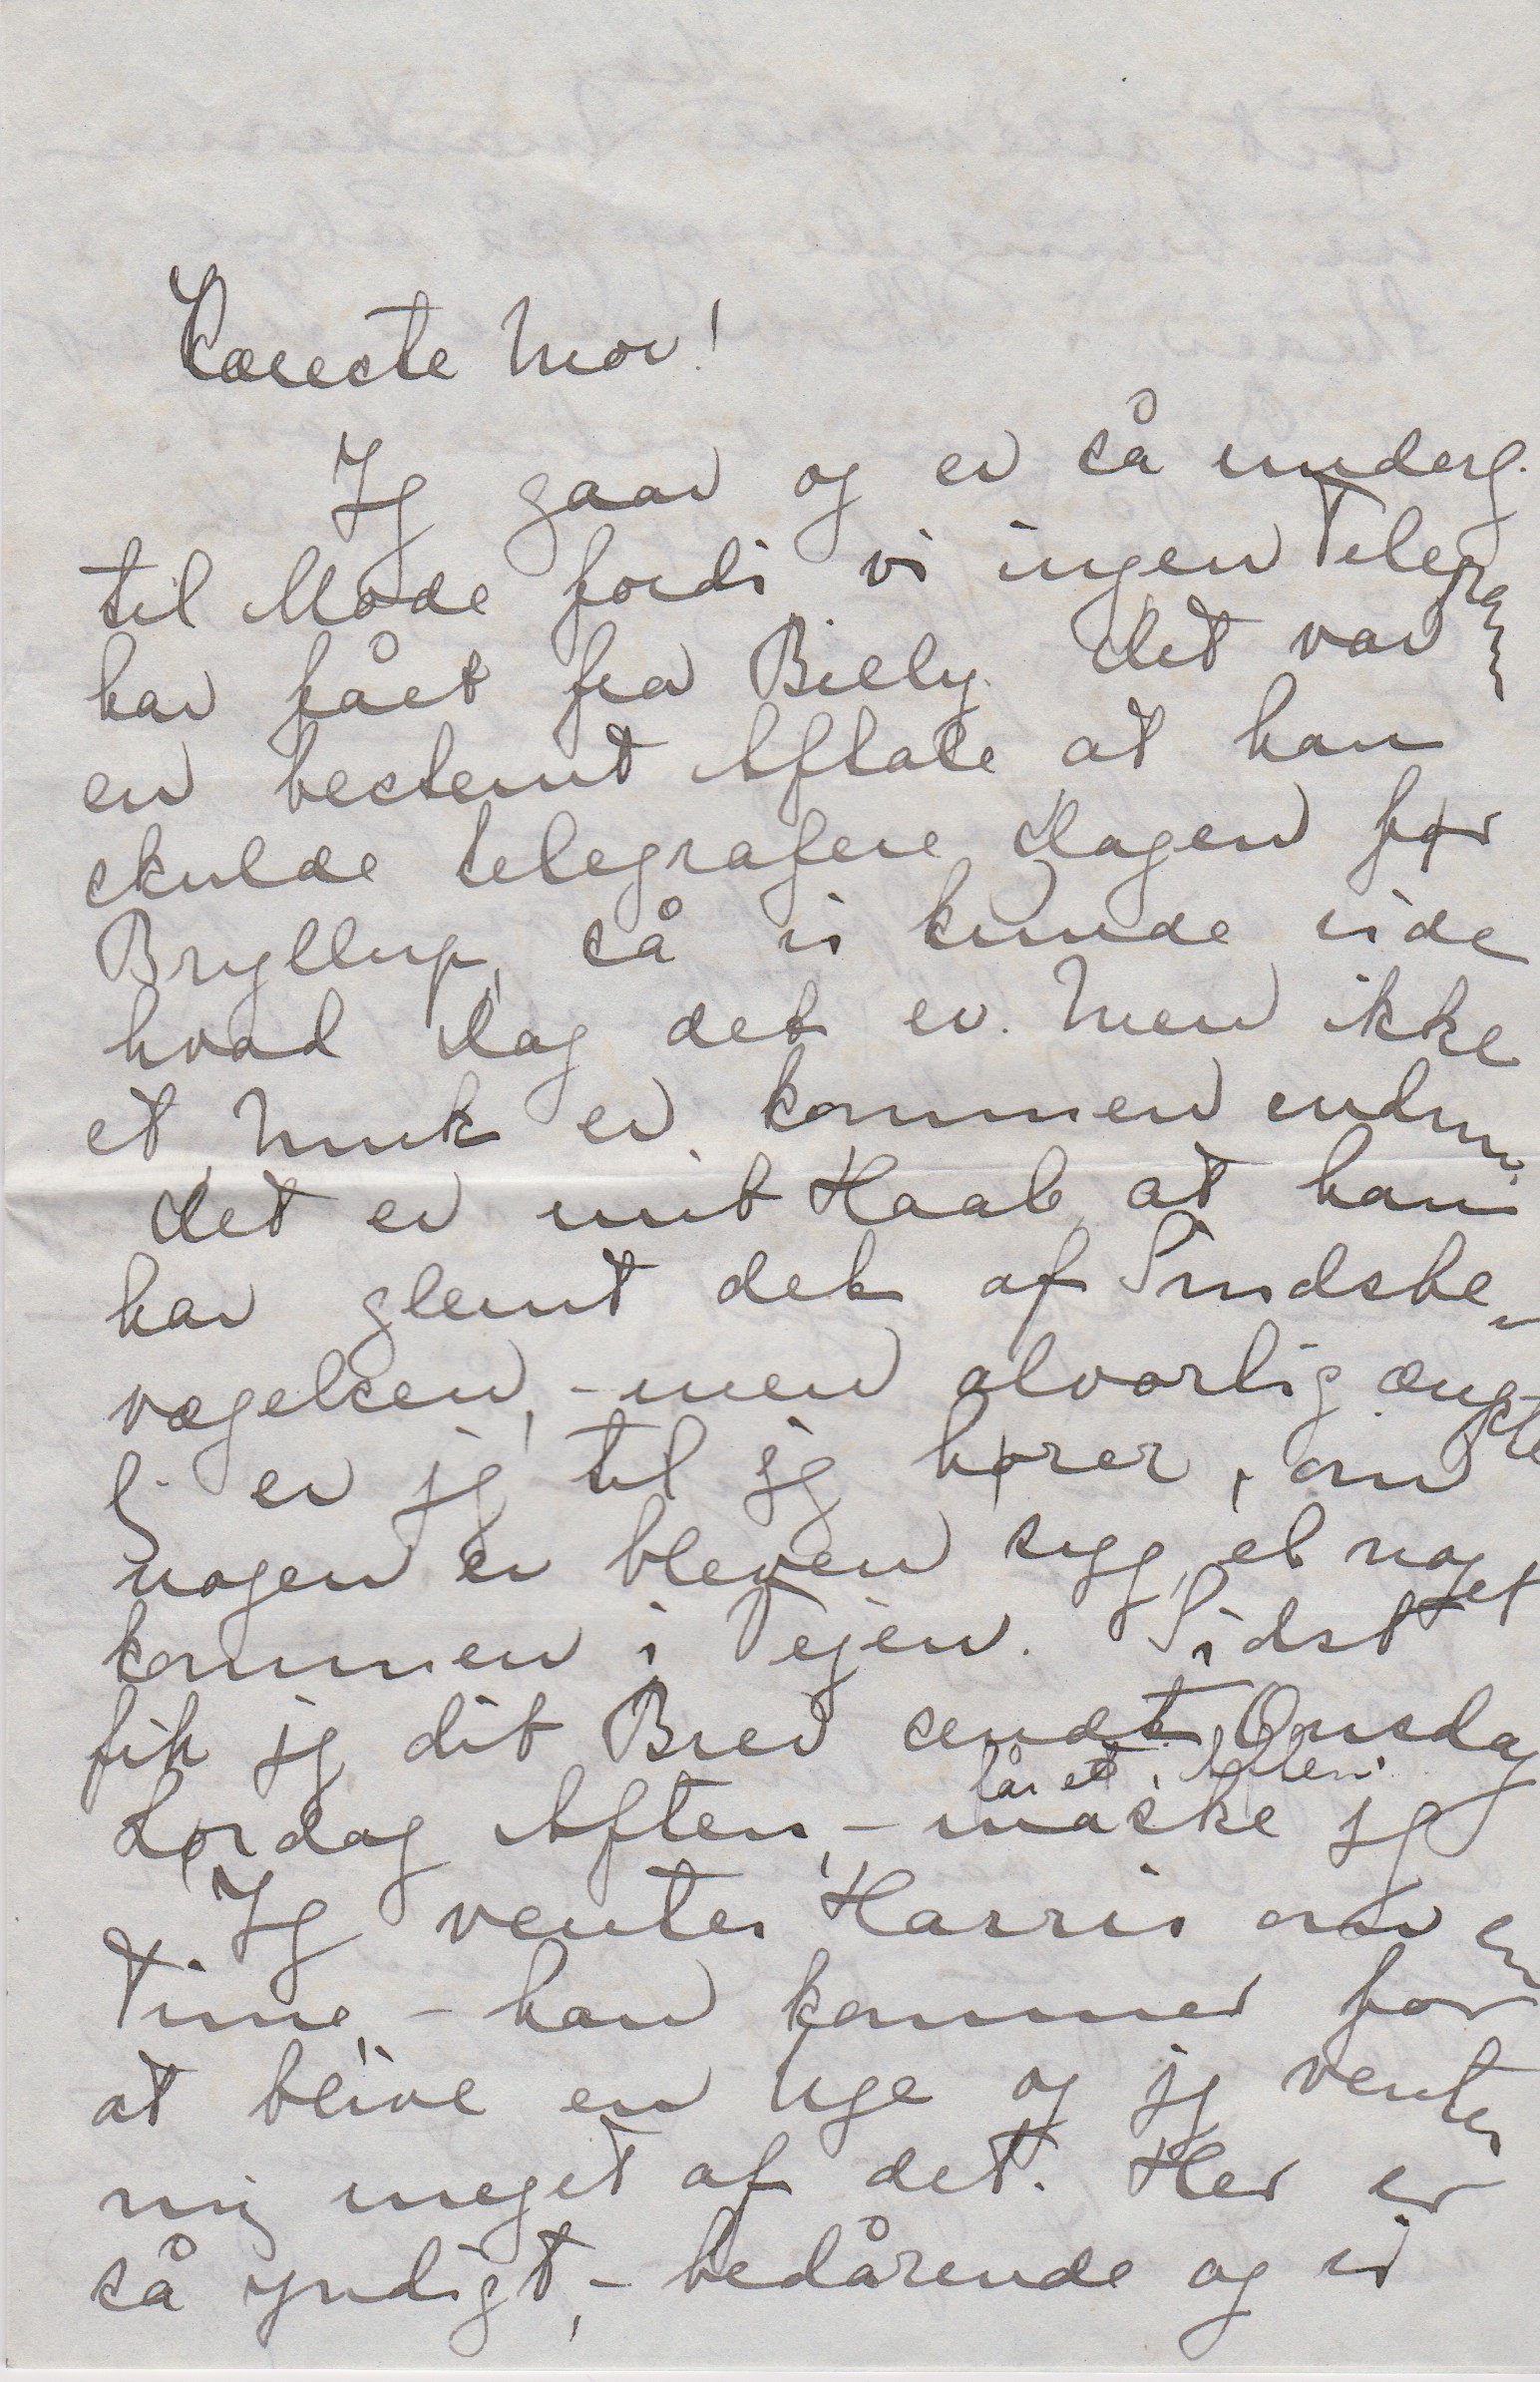 Kæreste Mor!
Jeg gaar og er så underl.
til Mode fordi vi ingen Telegram
har fået fra Billy. Det var
en bestemt Aftale at han
skulde telegrafere Dagen før
Bryllup, så vi kunde vide
hvad Dag det er. Men ikke
et Muk er kommen endnu
Det er mit Haab, at han
har glemt det af Sindsbe-
vægelsen, - men alvorlig ængste
lig er jeg til jeg hører, om
nogen er bleven syg, el noget
kommen i Vejen. Sidst
fik jeg dit Brev sendt Onsdag
får et i Aften.
Lørdag Aften, - måske jeg
Jeg venter Harris om en
Time, - han kommer for
at blive en Uge og jeg venter
mig meget af det. Her er
så yndigt, - bedårende og vi